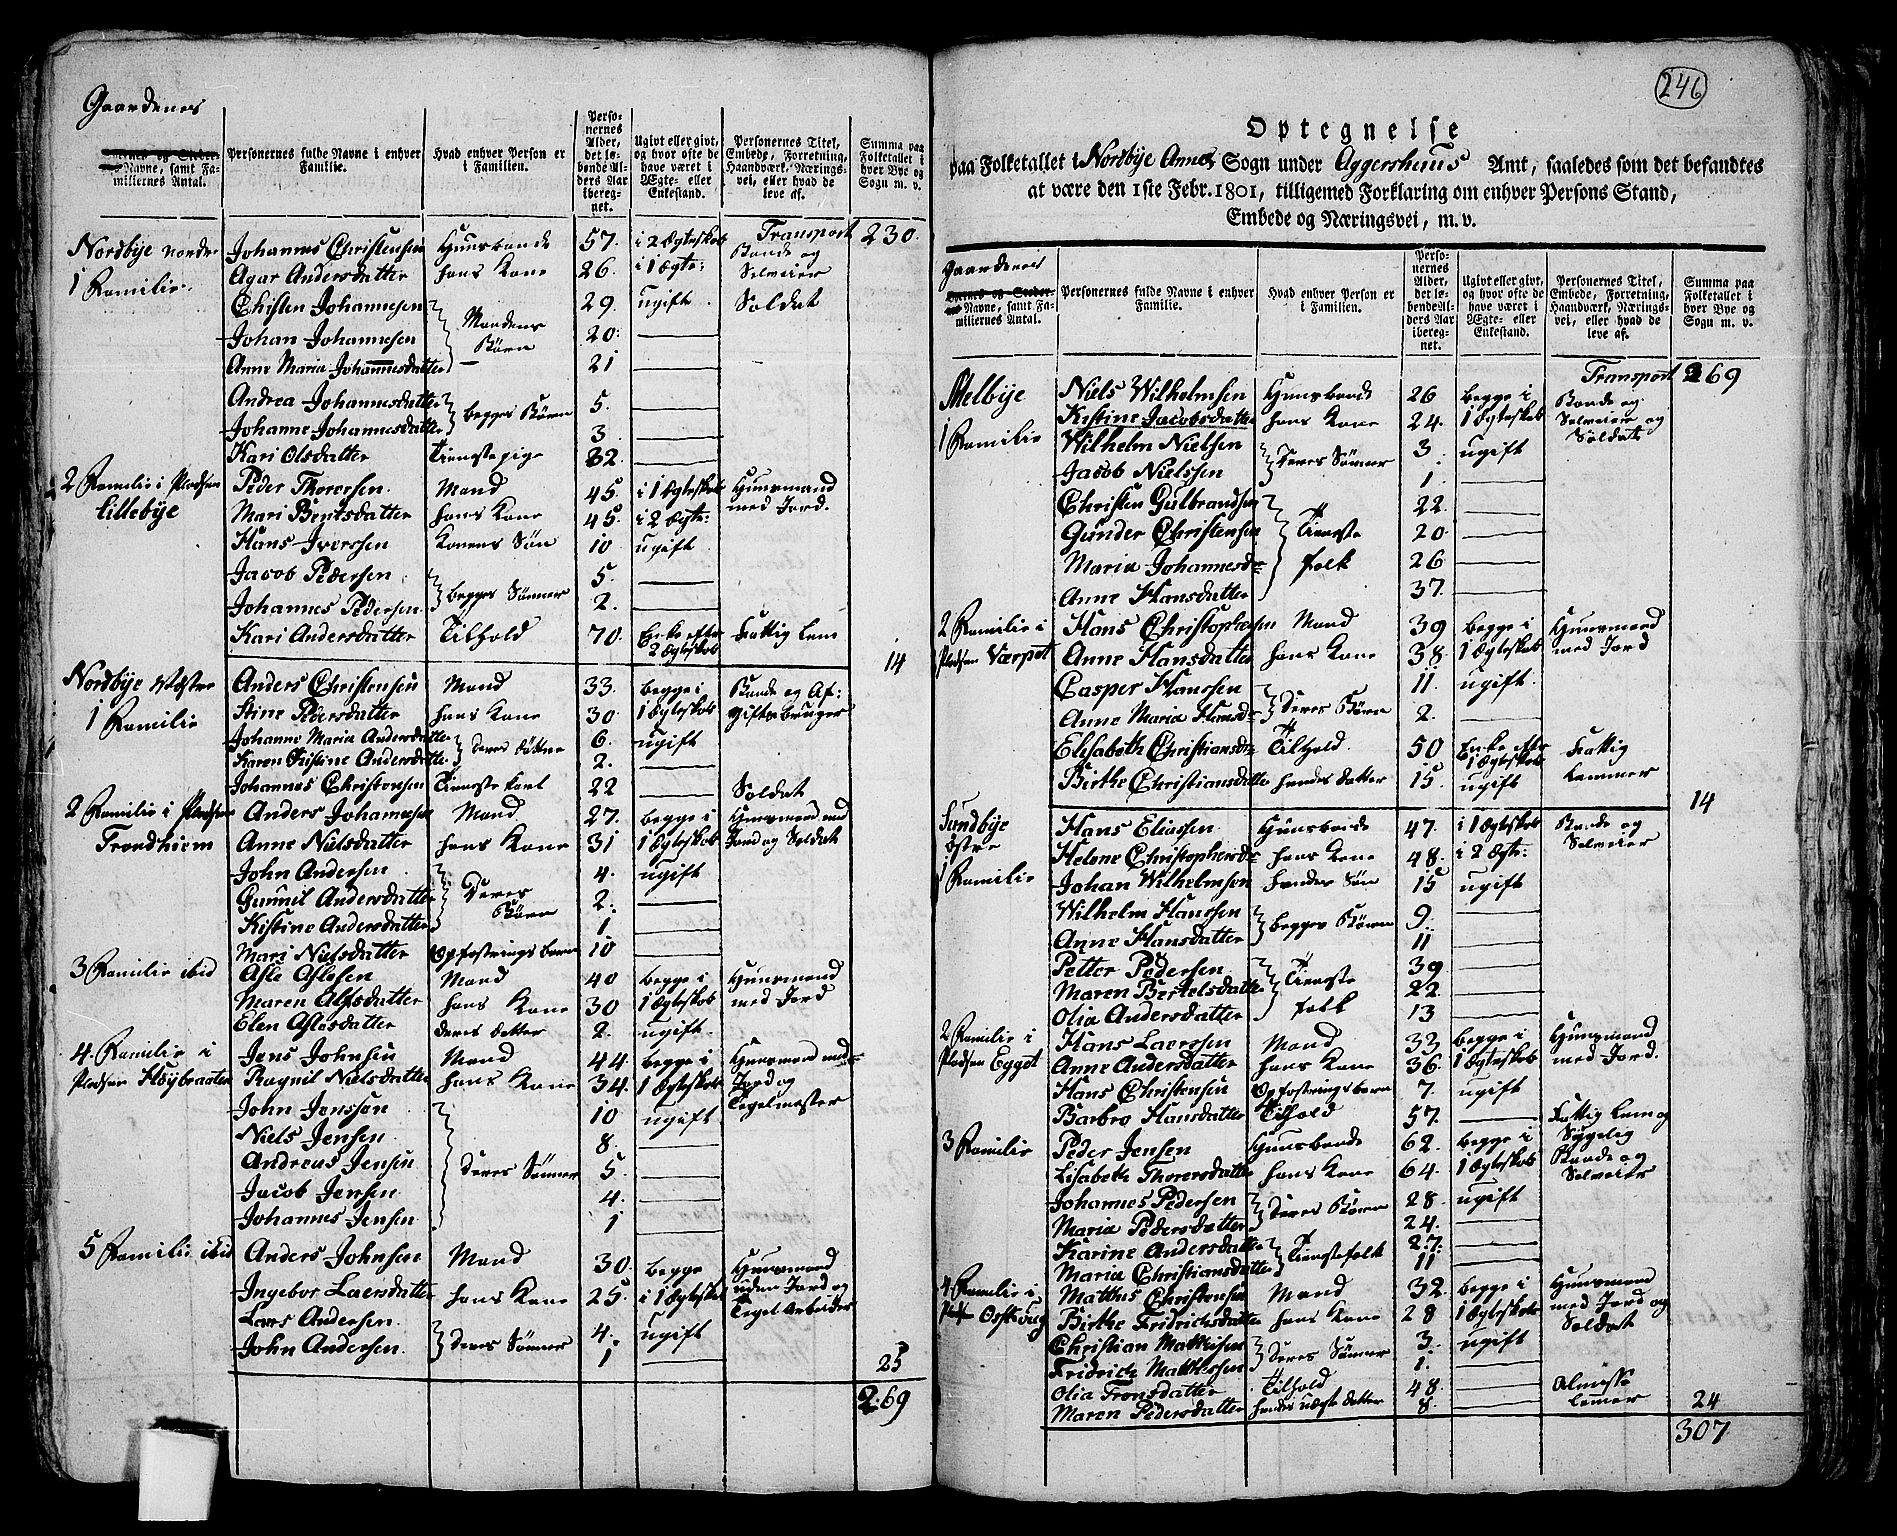 Gaardenes
Byernes og Stedernes Navne, samt Familiernes Antal.
Personernes fulde Navne i enhver Familie.
Hvad enhver Person er i Familien.
Personernes Alder, det løbende Alders Aar iberegnet.
Ugivt eller givt, og hvor ofte de have været i Ægte- eller Enkestand.
Personernes Titel, Embede, Forretning, Haandværk, Næringsvei, eller hvad de leve af.
Summa paa Folketallet i hver Bye og Sogn m. v.
Transport 230.
Nordbye nordre Johannes Christensen Huusbonde 57. i 2 Ægteskab Bonde og
1 Familie. Agar Andersdatter hans Kone 26. i 1 Ægte: Selveier
Christen Johannesen 29 ugift Soldat
Johan Johannesen Mandens Børn 20.
Anne Maria Johannesdatter 21
Andrea Johannesdatter begges Børn 5.
Johanne Johannesdatter 3
Kari Olsdatter Tienestepige 32.
2 Familie i Pladsen Peder Thorersen Mand 45. i 1 Ægteskab Huusmand
Lillebye Mari Bentsdatter hans Kone 45. i 2 Ægte: med Jord.
Hans Iverssen Konens Søn 10 ugift
Jacob Pedersen begges Sønner 5.
Johannes Pedersen 2.
Kari Andersdatter Tilhold 70. Enke efter 2 Ægteskab Fattig Lem
14
Nordbye Westre Anders Christensen Mand 33. begge i Bonde og Af:
1 Familie Stine Pedersdatter hans Kone 30. 1 Ægteskab gifts Bruger
Johanne Maria Andersdatter deres døttre 6. ugift
Karen Kistine Andersdatter 2.
Johannes Christensen Tieneste karl 22 Soldat
2 Familie i Pladsen Anders Johannesen Mand 27. begge i Huusmand med
Trondhiem Anne Nielsdatter hans Kone 31 1 Ægteskab Jord og Soldat
John Andersen Deres Børn 4. ugift
Gunnil Andersdatter 2.
Kistine Andersdatter 1
Mari Nielsdatter Opfostrings barn 10
3 Familie ibid Asle Aslesen Mand 40 begge i Huusmand
Maren Alfsdatter hans Kone 30 1 Ægteskab med Jord
Elen Aslesdatter deres datter 2. ugift
4. Familie i Jens Johnsen Mand 44. begge i Huusmand med
Pladsen Høybraaten Ragnil Nielsdatter hans Kone 34. 1 Ægteskab Jord og
John Jenssen Deres Sønner 10 ugift Tegelmester
Niels Jensen 8.
Andreas Jensen 5.
Jacob Jensen 4.
Johannes Jensen 1
5 Familie ibid Anders Johnsen Mand 30. begge Huusmand
Ingebor Laersdatter hans Kone 25. i 1 Ægteskab uden Jord og
Laers Andersen Deres Sønner 4. ugift Tegel Arbeider
John Andersen 1
25
269
246
Optegnelse
paa Folketallet i Nordbye Annex Sogn under Aggershuus Amt, saaledes som det befandtes
at være den 1ste Febr. 1801, tilligemed Forklaring om enhver Persons Stand,
Embede og Næringsvei, m. v.
Gaardenes
Byernes og Stedernes Navne, samt Familiernes Antal.
Personernes fulde Navne i enhver Familie.
Hvad enhver Person er i Familien.
Personernes Alder, det løbende Alders Aar iberegnet.
Ugivt eller givt, og hvor ofte de have været i Ægte- eller Enkestand.
Personernes Titel, Embede, Forretning, Haandværk, Næringsvei, eller hvad de leve af.
Summa paa Folketallet i hver Bye og Sogn m. v.
Transport 269
Melbye Niels Wilhelmsen Huusbonde 26 begge i Bonde og
Kistine Jacobsdatter hans Kone 24. 1 Ægteskab Selveier og
1 Familie Wilhelm Nielsen Deres Sønner 3. ugift Soldat
Jacob Nielssen 1.
Christen Gulbrandsen Tieneste folk 22.
Gunder Christensen 20.
Maria Johannesdr 26
Anne Hansdatter 37.
2 Familie i Hans Christophersen Mand 39 begge i Huusmand
Pladsen Værpet Anne Hansdatter hans Kone 38. 1 Ægteskab med Jord
Casper Hanssen Deres Børn 11. ugift
Anne Maria Hansdr 2.
Elisabeth Christiansdr Tilhold. 50 Enke efter 1 Ægteskab Fattig
Birthe Christiansdatter hendes datter 15. ugift Lemmer
14
Sundbye Østre Hans Eliassen Huusbonde 47. i 1 Ægteskab Bonde og
Helene Christophersdr hans Kone 48. i 2 Ægte: Selveier
1 Familie Johan Wilhelmsen hendes Søn 15 ugift
Wilhelm Hanssen begges Børn 9.
Anne Hansdatter 11
Petter Pedersen Tieneste folk 39
Maren Bertelsdatter 22.
Olia Andersdatter 13
2 Familie i Hans Laerssen Mand 33 begge i Huusmand
Pladsen Egget Anne Andersdatter hans Kone 36. 1 Ægteskab med Jord.
Hans Christensen Opfostrings barn 7. ugift
Barbro Hansdatter Tilhold 57. Fattig Lem og Sygelig
3 Familie Peder Jensen Huusbonde 62. begge i Bonde og
Lisabeth Thorersdatter hans Kone 64. 1 Ægteskab Selveier
Johannes Pedersen Deres Børn 28. ugift
Maria Pedersdatter 24.
Karine Andersdatter Tienestefolk 27.
Maria Christiansdatter 11
4 Familie i Mathis Christensen Mand 32. begge i Huusmand
Birthe Fridrichsdatter hans Kone 28 1 Ægteskab med Jord og
Christian Mathisen Deres Sønner 3. ugift Soldat
Fridrich Mathissen 1.
Olia Tronsdatter Tilhold 48. Almisse
Maren Pedersdatter hendes uægte datter 8. Lemer
24
307